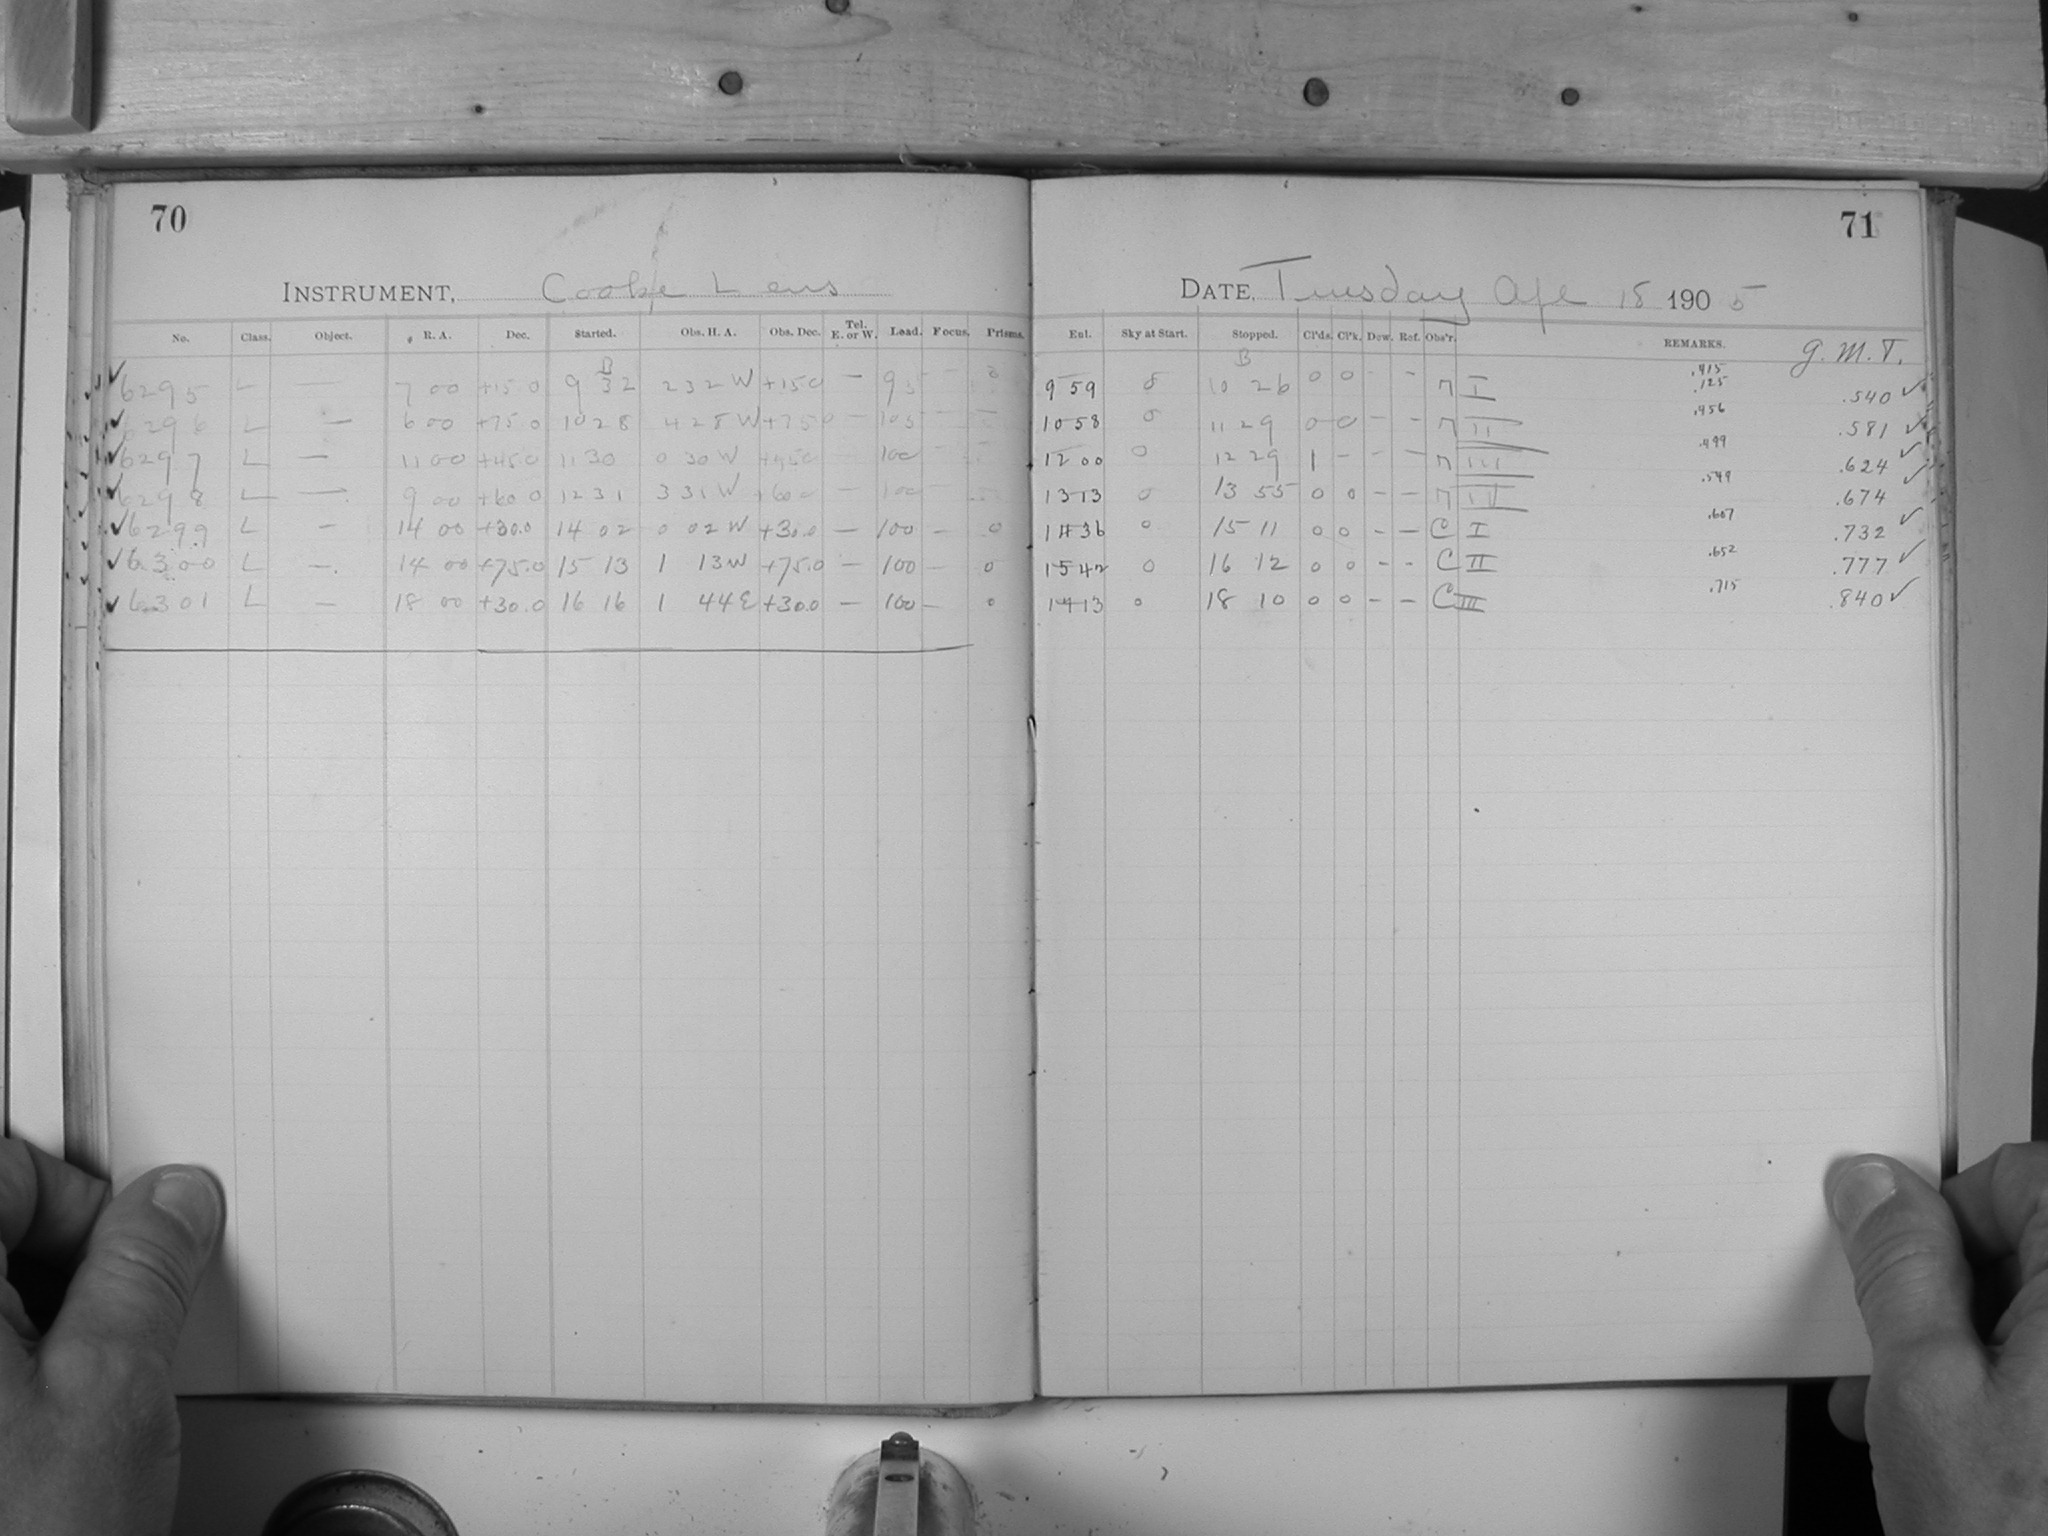 70
INSTRUMENT, Cooke Lens
No. Class. Object. R. A. Dec. Started. Obs. H. A. Obs. Dec. Tel. E. or W. Load. Focus. Prisms.
B
6295 L — 7 00 +15.0 9 32 2 32 W +15.0 — 95 — 0
6296 L — 6 00 +75.0 10 28 4 28 W +75.0 — 105 —
6297 L — 11 00 +45.0 11 30 0 30 W +45.0 — 100 —
6298 L — 9 00 +60.0 12 31 3 31 W +60.0 — 100 —
6299 L — 14 00 +30.0 14 02 0 02 W +30.0 — 100 — 0
6300 L — 14 00 +75.0 15 13 1 13 W +75.0 — 100 — 0
6301 L — 18 00 +30.0 16 16 1 44 E +30.0 — 100 — 0
71
DATE, Tuesday Apl 18 1905
Enl. Sky at Start. Stopped. Cl'ds. Cl'k. Dew. Ref. Obs'r. REMARKS. G. M. T.
B
9 59 0 10 26 0 0 - - I .415 .125 .540 ✓
10 58 0 11 29 0 0 - - II .456 .581 ✓
12 00 0 12 29 1 - - - III .499 .624 ✓
13 13 0 13 55 0 0 - - IV .549 .674 ✓
14 36 0 15 11 0 0 - - C I .607 .732 ✓
15 42 0 16 12 0 0 - - C II .652 .777 ✓
13 0 18 10 0 0 - - C III .715 .840 ✓